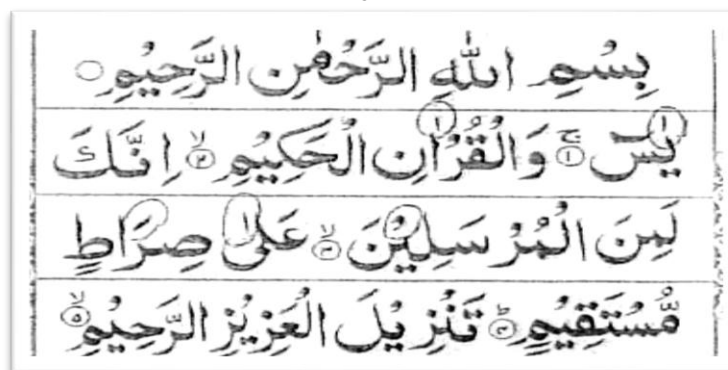 بِسْمِ اللّٰهِ الرَّحْمٰنِ الرَّحِيْمِ ○
يٰسٓ ۚ ﴿١﴾ وَالْقُرْاٰنِ الْحَكِيْمِ ۙ ﴿٢﴾ اِنَّكَ
لَمِنَ الْمُرْسَلِيْنَ ۙ ﴿٣﴾ عَلٰى صِرَاطٍ
مُّسْتَقِيْمٍ ؕ ﴿٤﴾ تَنْزِيْلَ الْعَزِيْزِ الرَّحِيْمِ ۙ ﴿٥﴾